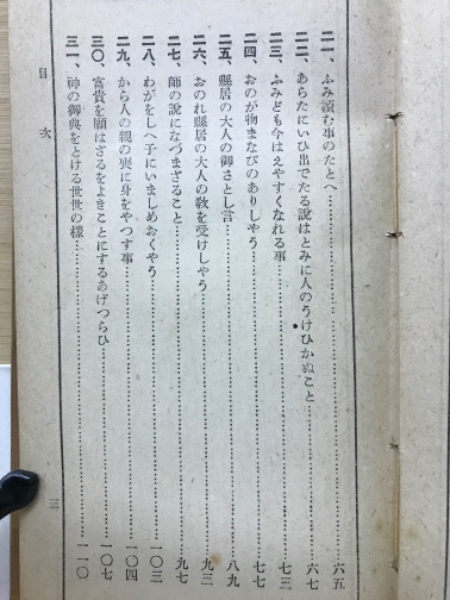 二一、ふみ讀む事のたとへ……六五
二二、あらたにいひ出でたる說はとみに人のうけひかぬこと……六七
二三、ふみども今はえやすくなれる事……七三
二四、おのが物まなびのありしやう……七七
二五、縣居の大人の御さとし言……八九
二六、おのれ縣居の大人の敎を受けしやう……九三
二七、師の說になづまざること……九七
二八、わがをしへ子にいましめおくやう……一〇三
二九、から人の親の喪に身をやつす事……一〇四
三〇、富貴を願はざるをよきことにするあげつらひ……一〇七
三一、神の御典をとける世世の樣……一一〇
目次
三